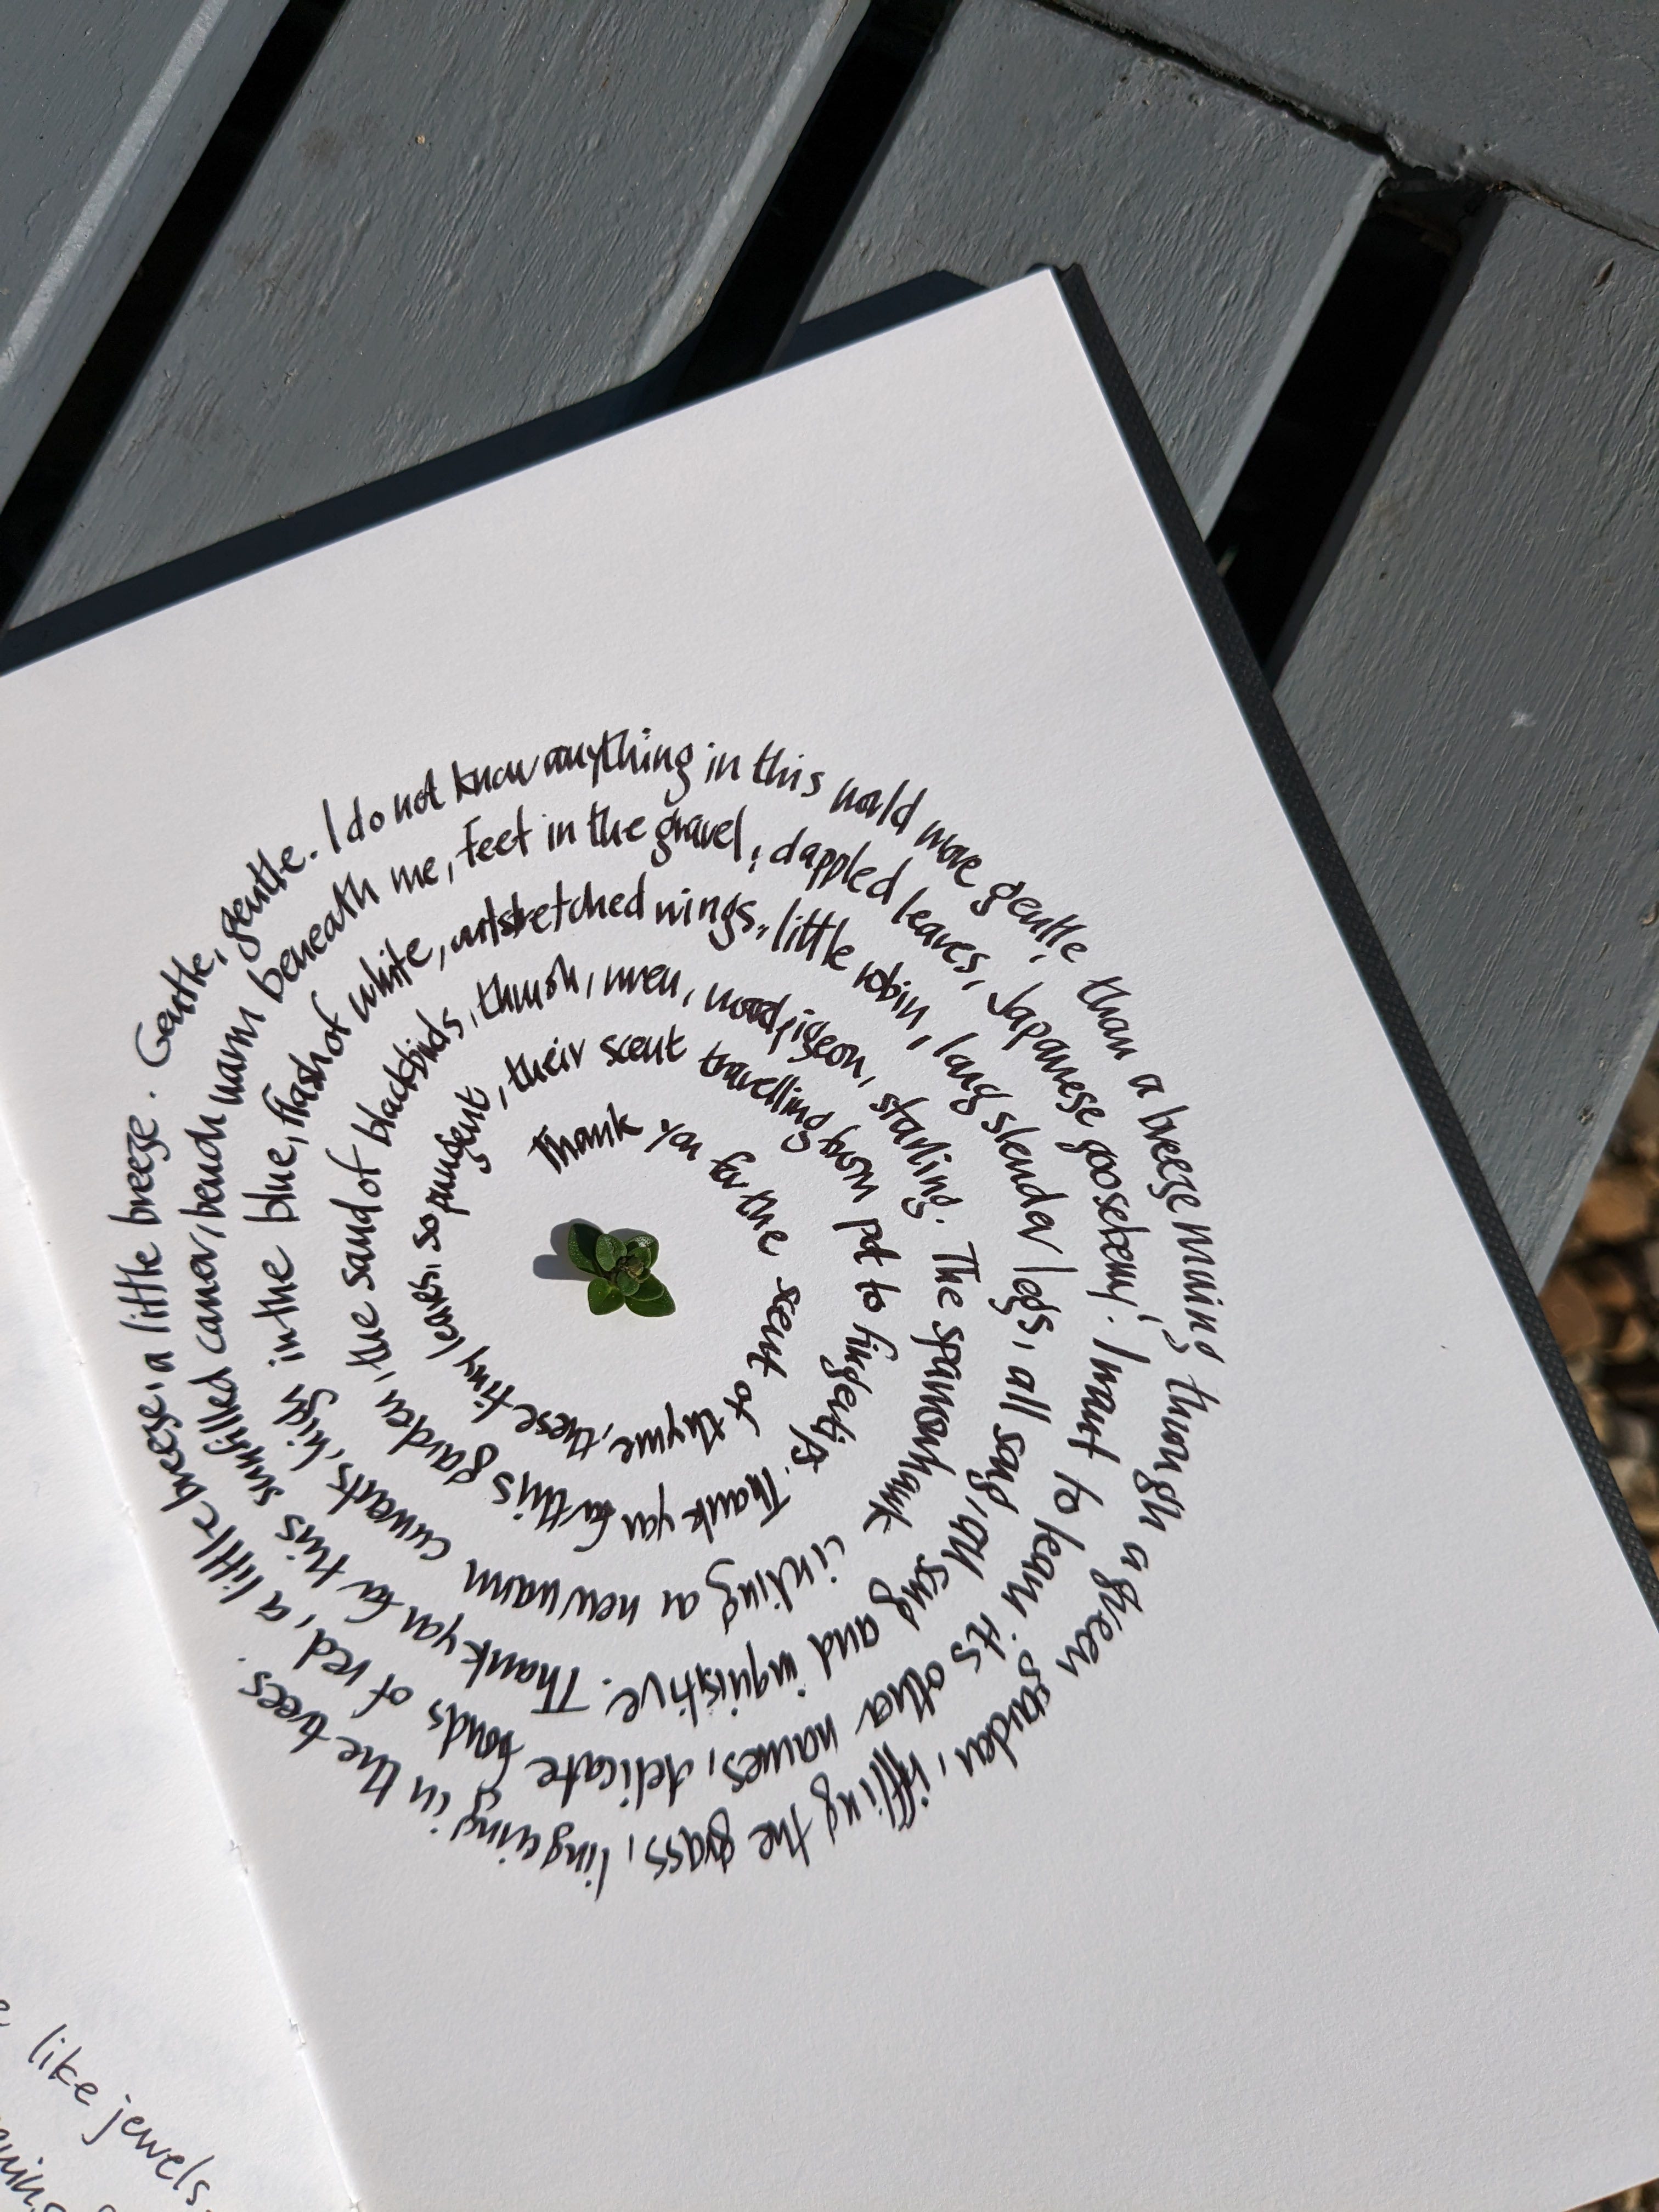 Thank you for the scent of thyme, these tiny leaves, so pungent, their scent travelling from pot to fingertips. Thank you for this garden, the sound of blackbirds, thrush, wren, woodpigeon, starling. The sparrowhawk circling on new warm currents, high in the blue, flash of white, outstretched wings, little robin, long slender legs, all song, all song and inquisitive. Thank you for this sunfilled corner, bench warm beneath me, feet in the gravel, dappled leaves, Japanese gooseberry. I want to learn its other names, delicate fronds of red, a little breeze, a little breeze. Gentle, gentle. I do not know anything in this world more gentle than a breeze moving through a green garden, riffling the grass, lingering in the trees.
like jewels.